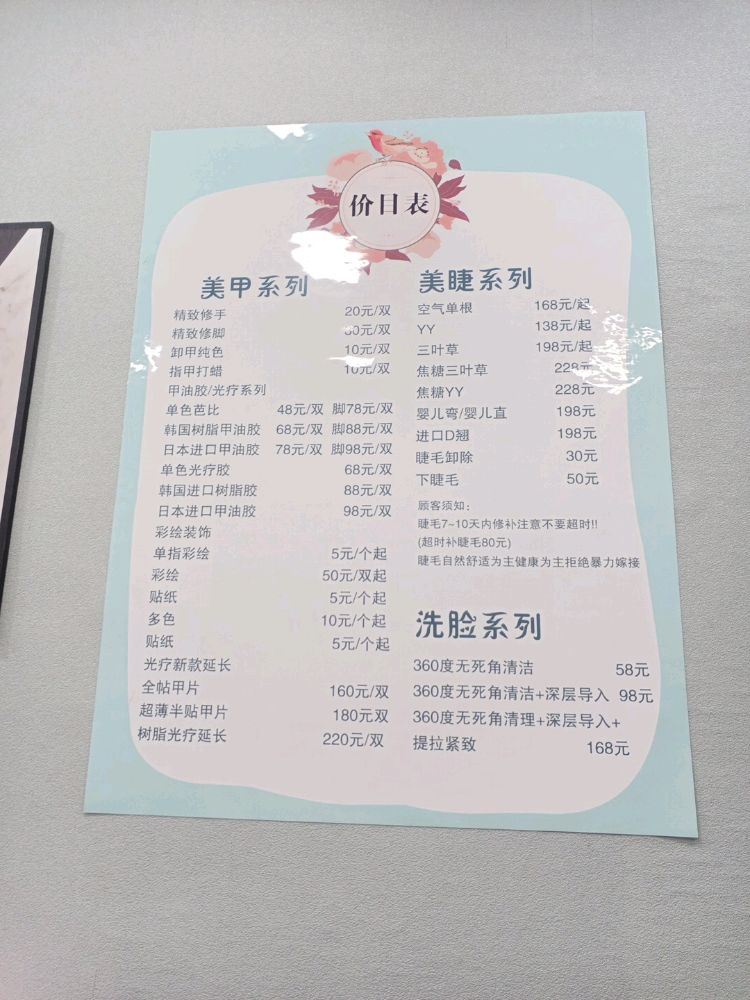 价目表
美甲系列
精致修手 20元/双
精致修脚 30元/双
卸甲纯色 10元/双
指甲打蜡 10元/双
甲油胶/光疗系列
单色芭比 48元/双 脚78元/双
韩国树脂甲油胶 68元/双 脚88元/双
日本进口甲油胶 78元/双 脚98元/双
单色光疗胶 68元/双
韩国进口树脂胶 88元/双
日本进口甲油胶 98元/双
彩绘装饰
单指彩绘 5元/个起
彩绘 50元/双起
贴纸 5元/个起
多色 10元/个起
贴纸 5元/个起
光疗新款延长
全帖甲片 160元/双
超薄半贴甲片 180元双
树脂光疗延长 220元/双
美睫系列
空气单根 168元/起
YY 138元/起
三叶草 198元/起
焦糖三叶草 228元
焦糖YY 228元
婴儿弯/婴儿直 198元
进口D翘 198元
睫毛卸除 30元
下睫毛 50元
顾客须知:
睫毛7~10天内修补注意不要超时!!
(超时补睫毛80元)
睫毛自然舒适为主健康为主拒绝暴力嫁接
洗脸系列
360度无死角清洁 58元
360度无死角清洁+深层导入 98元
360度无死角清理+深层导入+
提拉紧致 168元